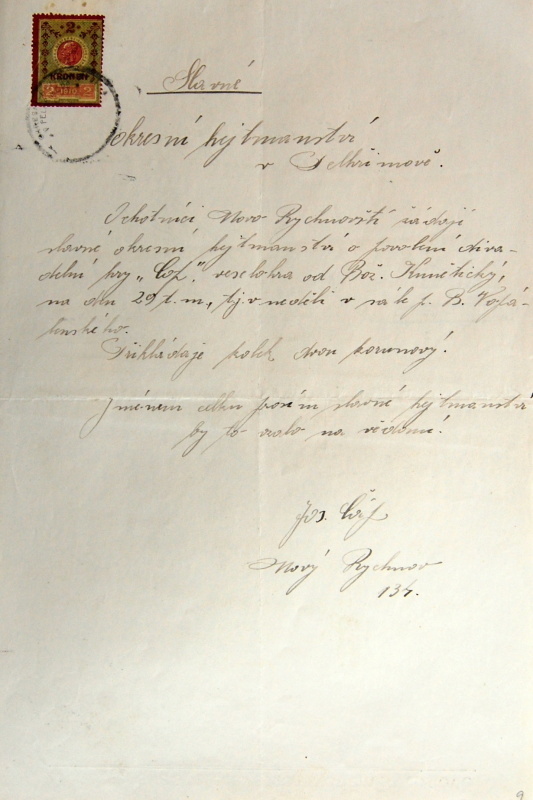 2
KRONEN
2 1910 2
Slavné
okresní hejtmanství
v Pelhřimově.
Ochotníci Novo Rychnovští žádají
slavné okresní hejtmanství o povolení diva-
delní hry „Cop”, veselohra od Bož. Kunětický,
na den 29 t. m., tj. v neděli v sále p. B. Vopá-
lenského.
Přikládaje kolek dvou korunový.
Jménem celku prosím slavné hejtmanství
by to vzalo na vědomí.
Jos.
Nový Rychnov
134.
9